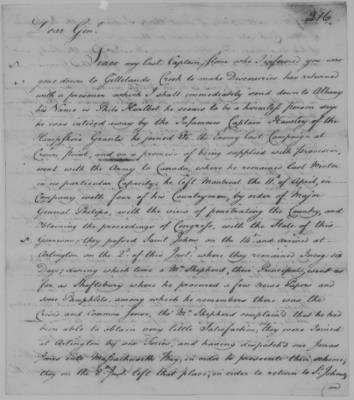 216
Dear Gen.l
Since my last Captain Stone who I informed you was
gone down to Gillelands Creek to make Discoveries has returned
with a prisoner which I shall immediately send down to Albany
his Name is Philo he seems to be a harmless person says
he was inticed away by the Infamous Captain Hawley of the
Hampshire Grants, he joined the Enemy last Campaign at
Crown Point, and on a promise of being supplied with
went with the Army to Canada, where he remained last Winter
in no particular Capacity; he left Montreal the 11th of April, in
Company with four of his Countrymen, by order of Major
General Philips, with the view of penetrating the Country, and
obtaining the proceedings of Congress, with the State of this
Garrison; they passed Saint Johns on the 14. and arrived at
Arlington on the 2d of this Inst. where they remained
Days; during which time a Mr Shepherd, their Principal, went as
far as Shaftsbury where he procured a few News Papers and
some Pamphlets, among which he remembers there was, the
Crisis and Common Sense, the Mr Shepherd complain'd that he had
been able to obtain very little Satisfaction, they were Joined
at Arlington by six Tories, and having dispatch'd one Jonas
into Massachusets Bay, in order to prosecute their scheme,
they on the Inst. left that place, in order to return to St Johns,
and